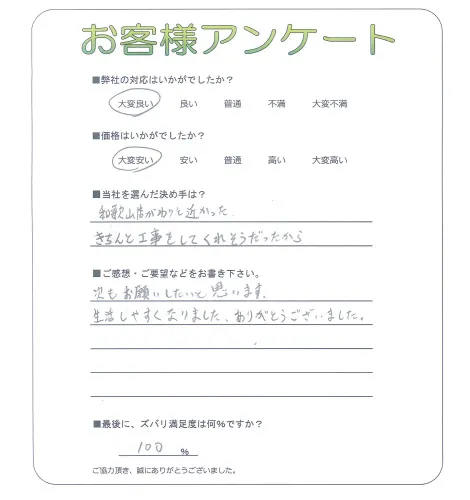 お客様アンケート
■弊社の対応はいかがでしたか？
大変良い 良い 普通 不満 大変不満
■価格はいかがでしたか？
大変安い 安い 普通 高い 大変高い
■当社を選んだ決め手は？
和歌山店がわりと近かった.
きちんと工事をしてくれそうだったから
■ご感想・ご要望などをお書き下さい。
次もお願いしたいと思います.
生活しやすくなりました、ありがとうございました。
■最後に、ズバリ満足度は何%ですか？
100 %
ご協力頂き、誠にありがとうございました。